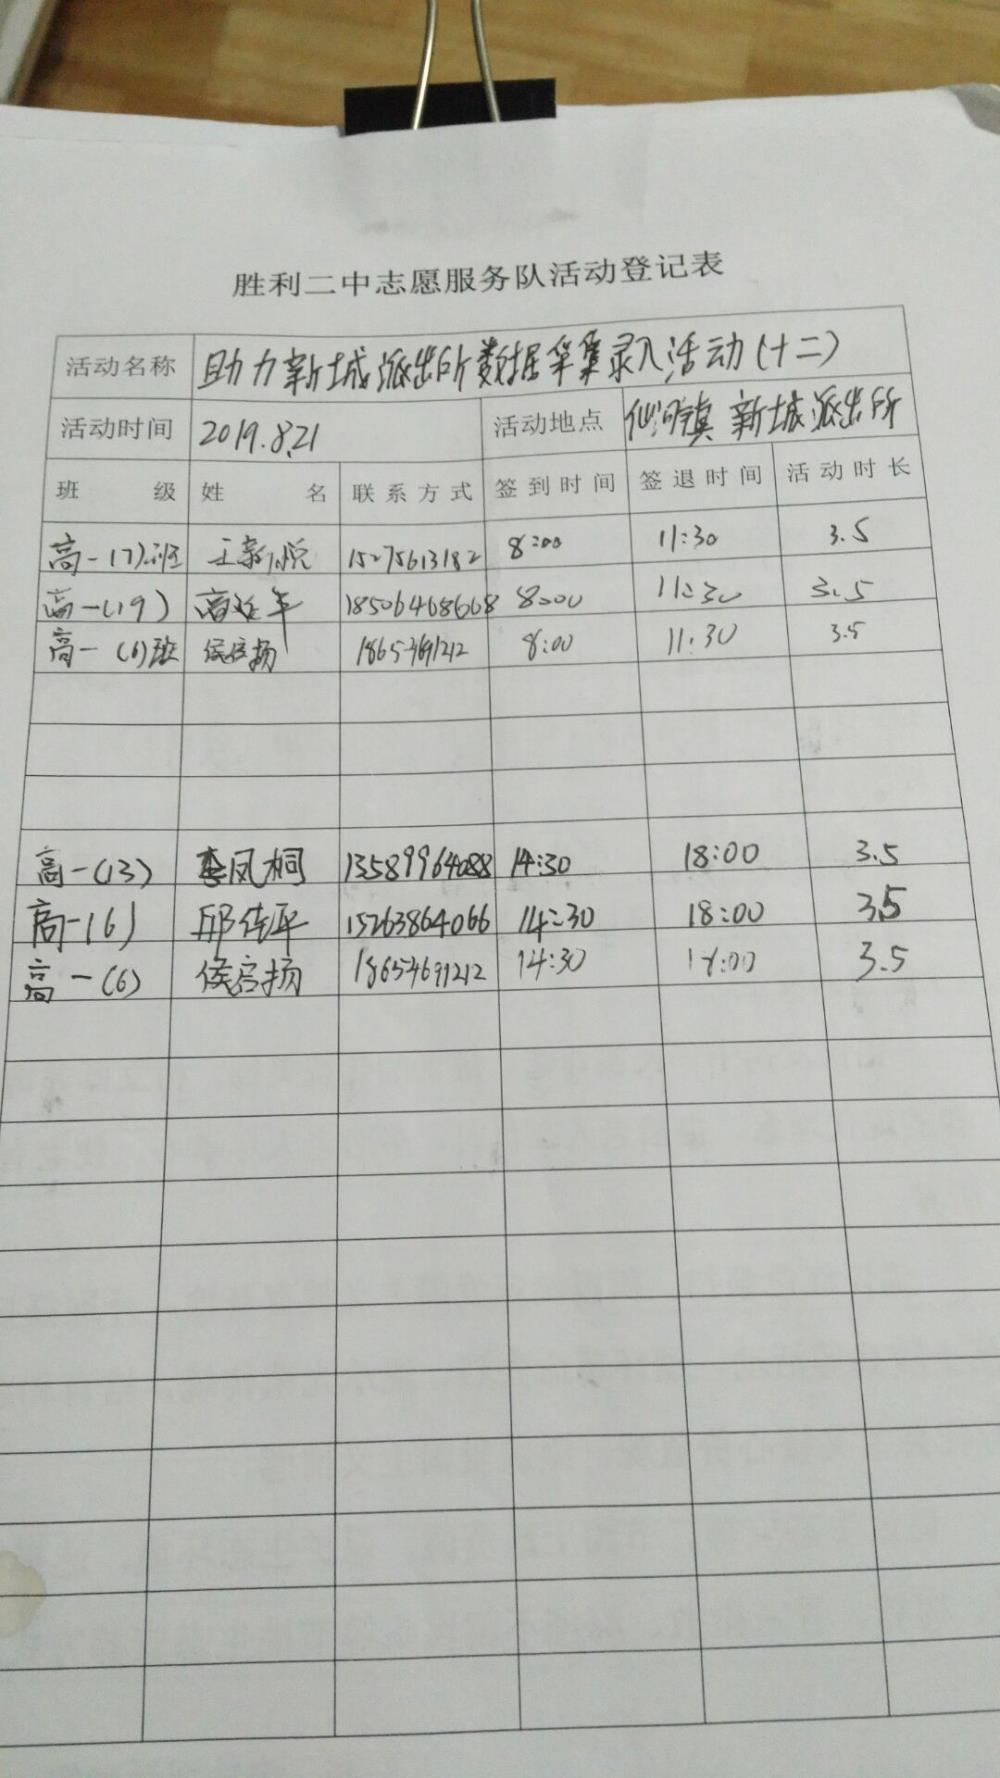 胜利二中志愿服务队活动登记表
活动名称 助力新城派出所数据采集录入活动(十二)
活动时间 2019.8.21 活动地点 仙河镇 新城派出所
班级 姓名 联系方式 签到时间 签退时间 活动时长
高一(7)班 王新悦 15275613182 8:00 11:30 3.5
高一(19) 高延年 18506468668 8:00 11:30 3.5
高一(6)班 侯启扬 18654691212 8:00 11:30 3.5
高一(13) 李凤桐 13589964088 14:30 18:00 3.5
高一(6) 邱佳平 15263864066 14:30 18:00 3.5
高一(6) 侯启扬 18654691212 14:30 18:00 3.5